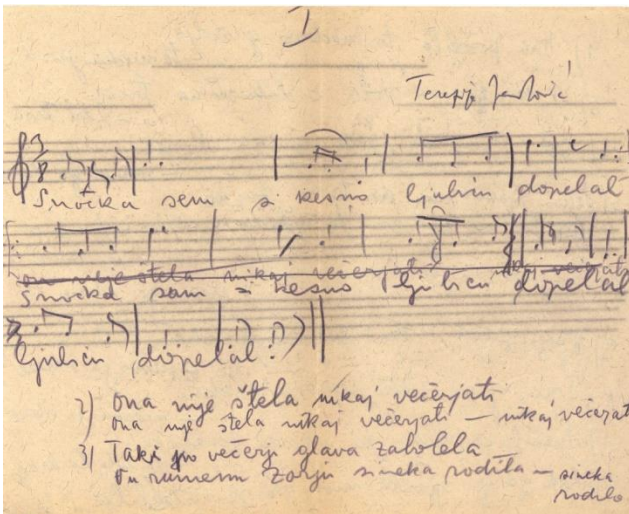 I
3/8
Snočka sem si kesno ljubicu dopelal
on nije štela nikaj večerjati
Snočka sam kesno ljubicu dopelal
ljubicu dopelal
2) ona nije štela nikaj večerjati
ona nije štela nikaj večerjati – nikaj večerjati
3) Taki po večerji glava zabolela
rumenu zorju sineka rodila – sineka
rodila